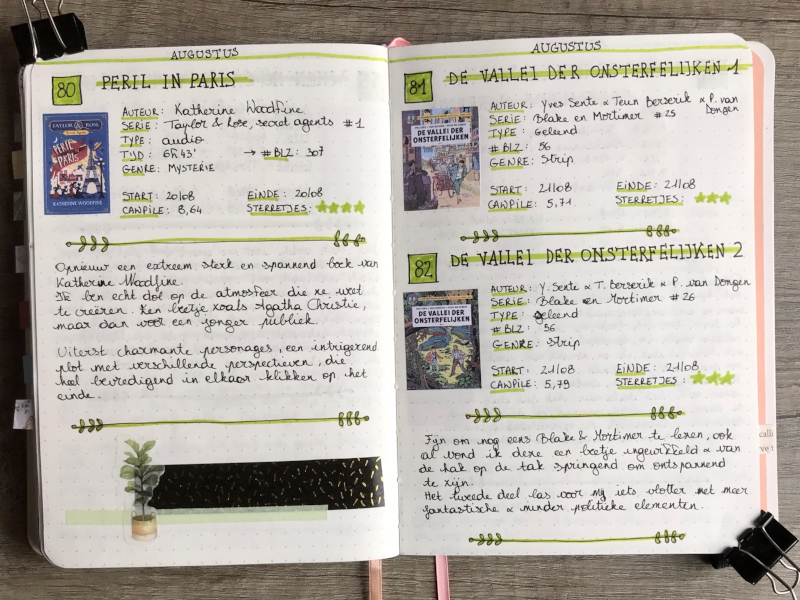 AUGUSTUS
80 PERIL IN PARIS
TAYLOR & ROSE
PERIL IN PARIS
KATHERINE WOODFINE
AUTEUR: Katherine Woodfine
SERIE: Taylor & Rose, secret agents #1
TYPE: audio
TIJD: 6h43' → #BLZ: 307
GENRE: MYSTERIE
START: 20/08 EINDE: 20/08
CAWPILE: 8,64 STERRETJES:
Opnieuw een extreem sterk en spannend boek van
Katherine Woodfine.
Ik ben echt dol op de atmosfeer die ze weet
te creëren. Een beetje zoals Agatha Christie,
maar dan voor een jonger publiek.
Uiterst charmante personages, een intrigerend
plot met verschillende perspectieven, die
heel bevredigend in elkaar klikken op het
einde.
AUGUSTUS
81 DE VALLEI DER ONSTERFELIJKEN 1
DE VALLEI DER
ONSTERFELIJKEN
AUTEUR: Yves Sente & Teun Berserik & P. van
Dongen
SERIE: Blake en Mortimer #25
TYPE: Geleend
#BLZ: 56
GENRE: Strip
START: 21/08 EINDE: 21/08
CAWPILE: 5,71 STERRETJES:
82 DE VALLEI DER ONSTERFELIJKEN 2
DE VALLEI DER
ONSTERFELIJKEN
AUTEUR: Y. Sente & T. Berserik & P. van Dongen
SERIE: Blake en Mortimer #26
TYPE: geleend
#BLZ: 56
GENRE: Strip
START: 21/08 EINDE: 21/08
CAWPILE: 5,79 STERRETJES:
Fijn om nog eens Blake & Mortimer te lezen, ook
al vond ik deze een beetje ingewikkeld & van
de hak op de tak springend om ontspannend
te zijn.
Het tweede deel las voor mij iets vlotter met meer
fantastische & minder politieke elementen.